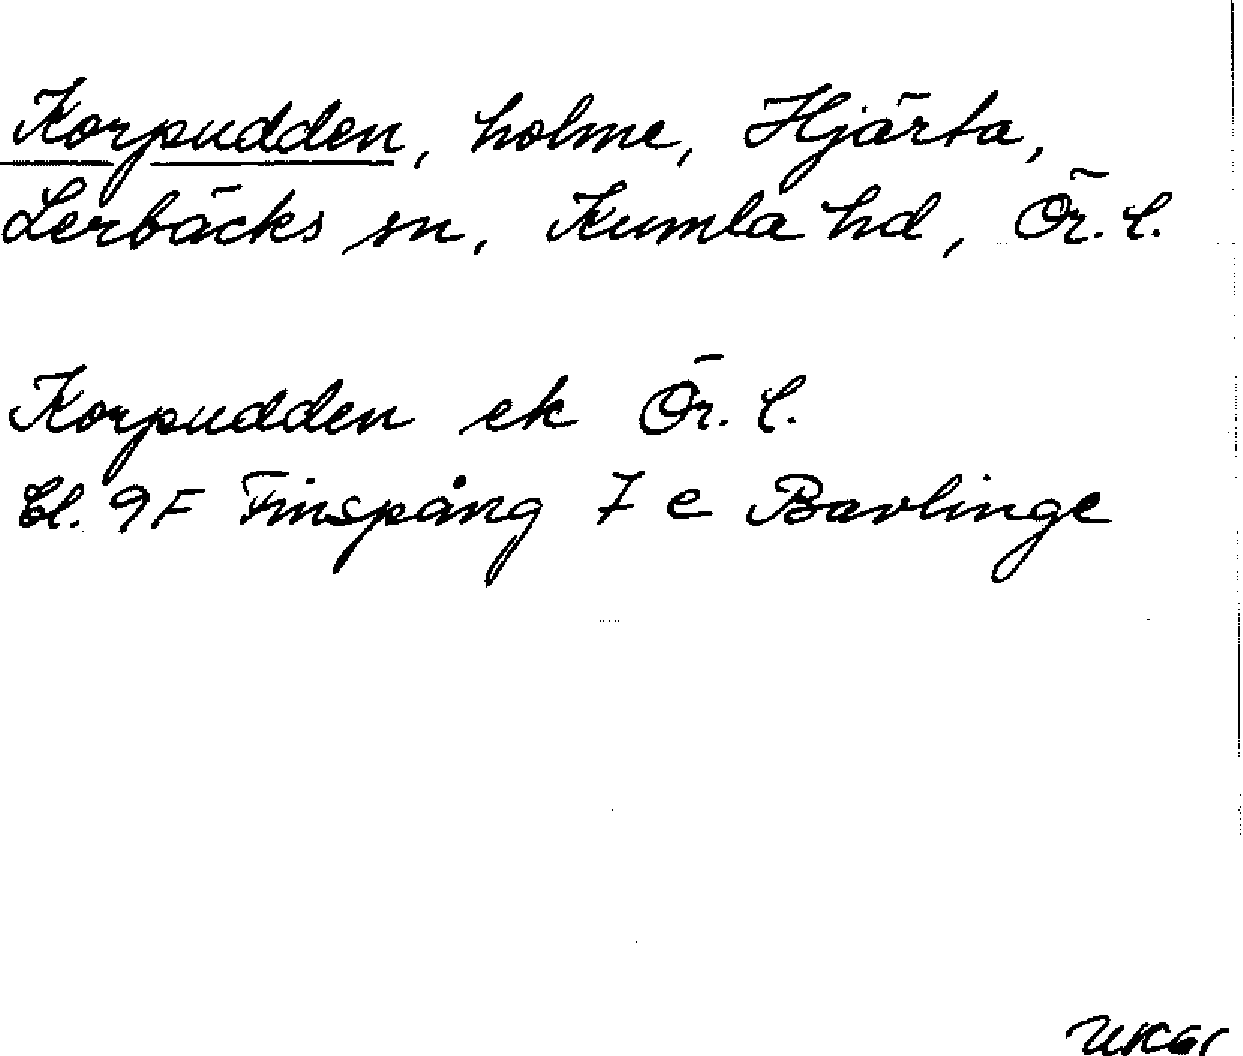 Korpudden, holme, Hjärta,
Lerbäcks sn, Kumla hd, Ör. l.
Korpudden ek Ör. l.
bl. 9F Finspång 7 e Bavlinge